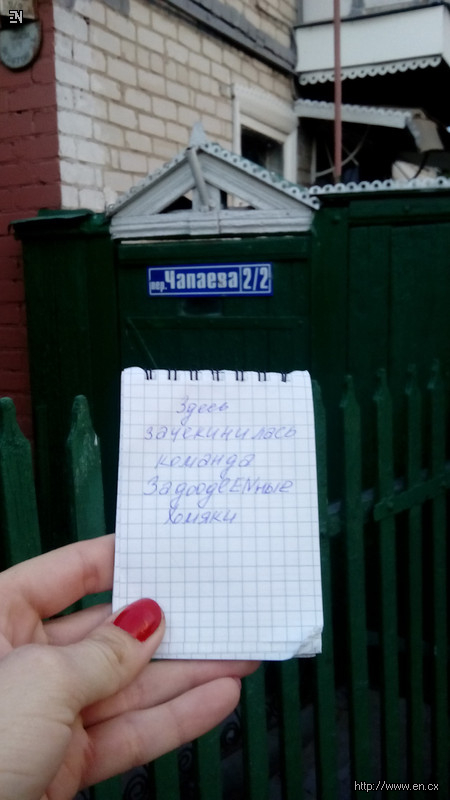 EN
пер. Чапаева 2/2
Здесь
зачекинилась
команда
ЗадоодвENные
хомяки
http://www.en.cx